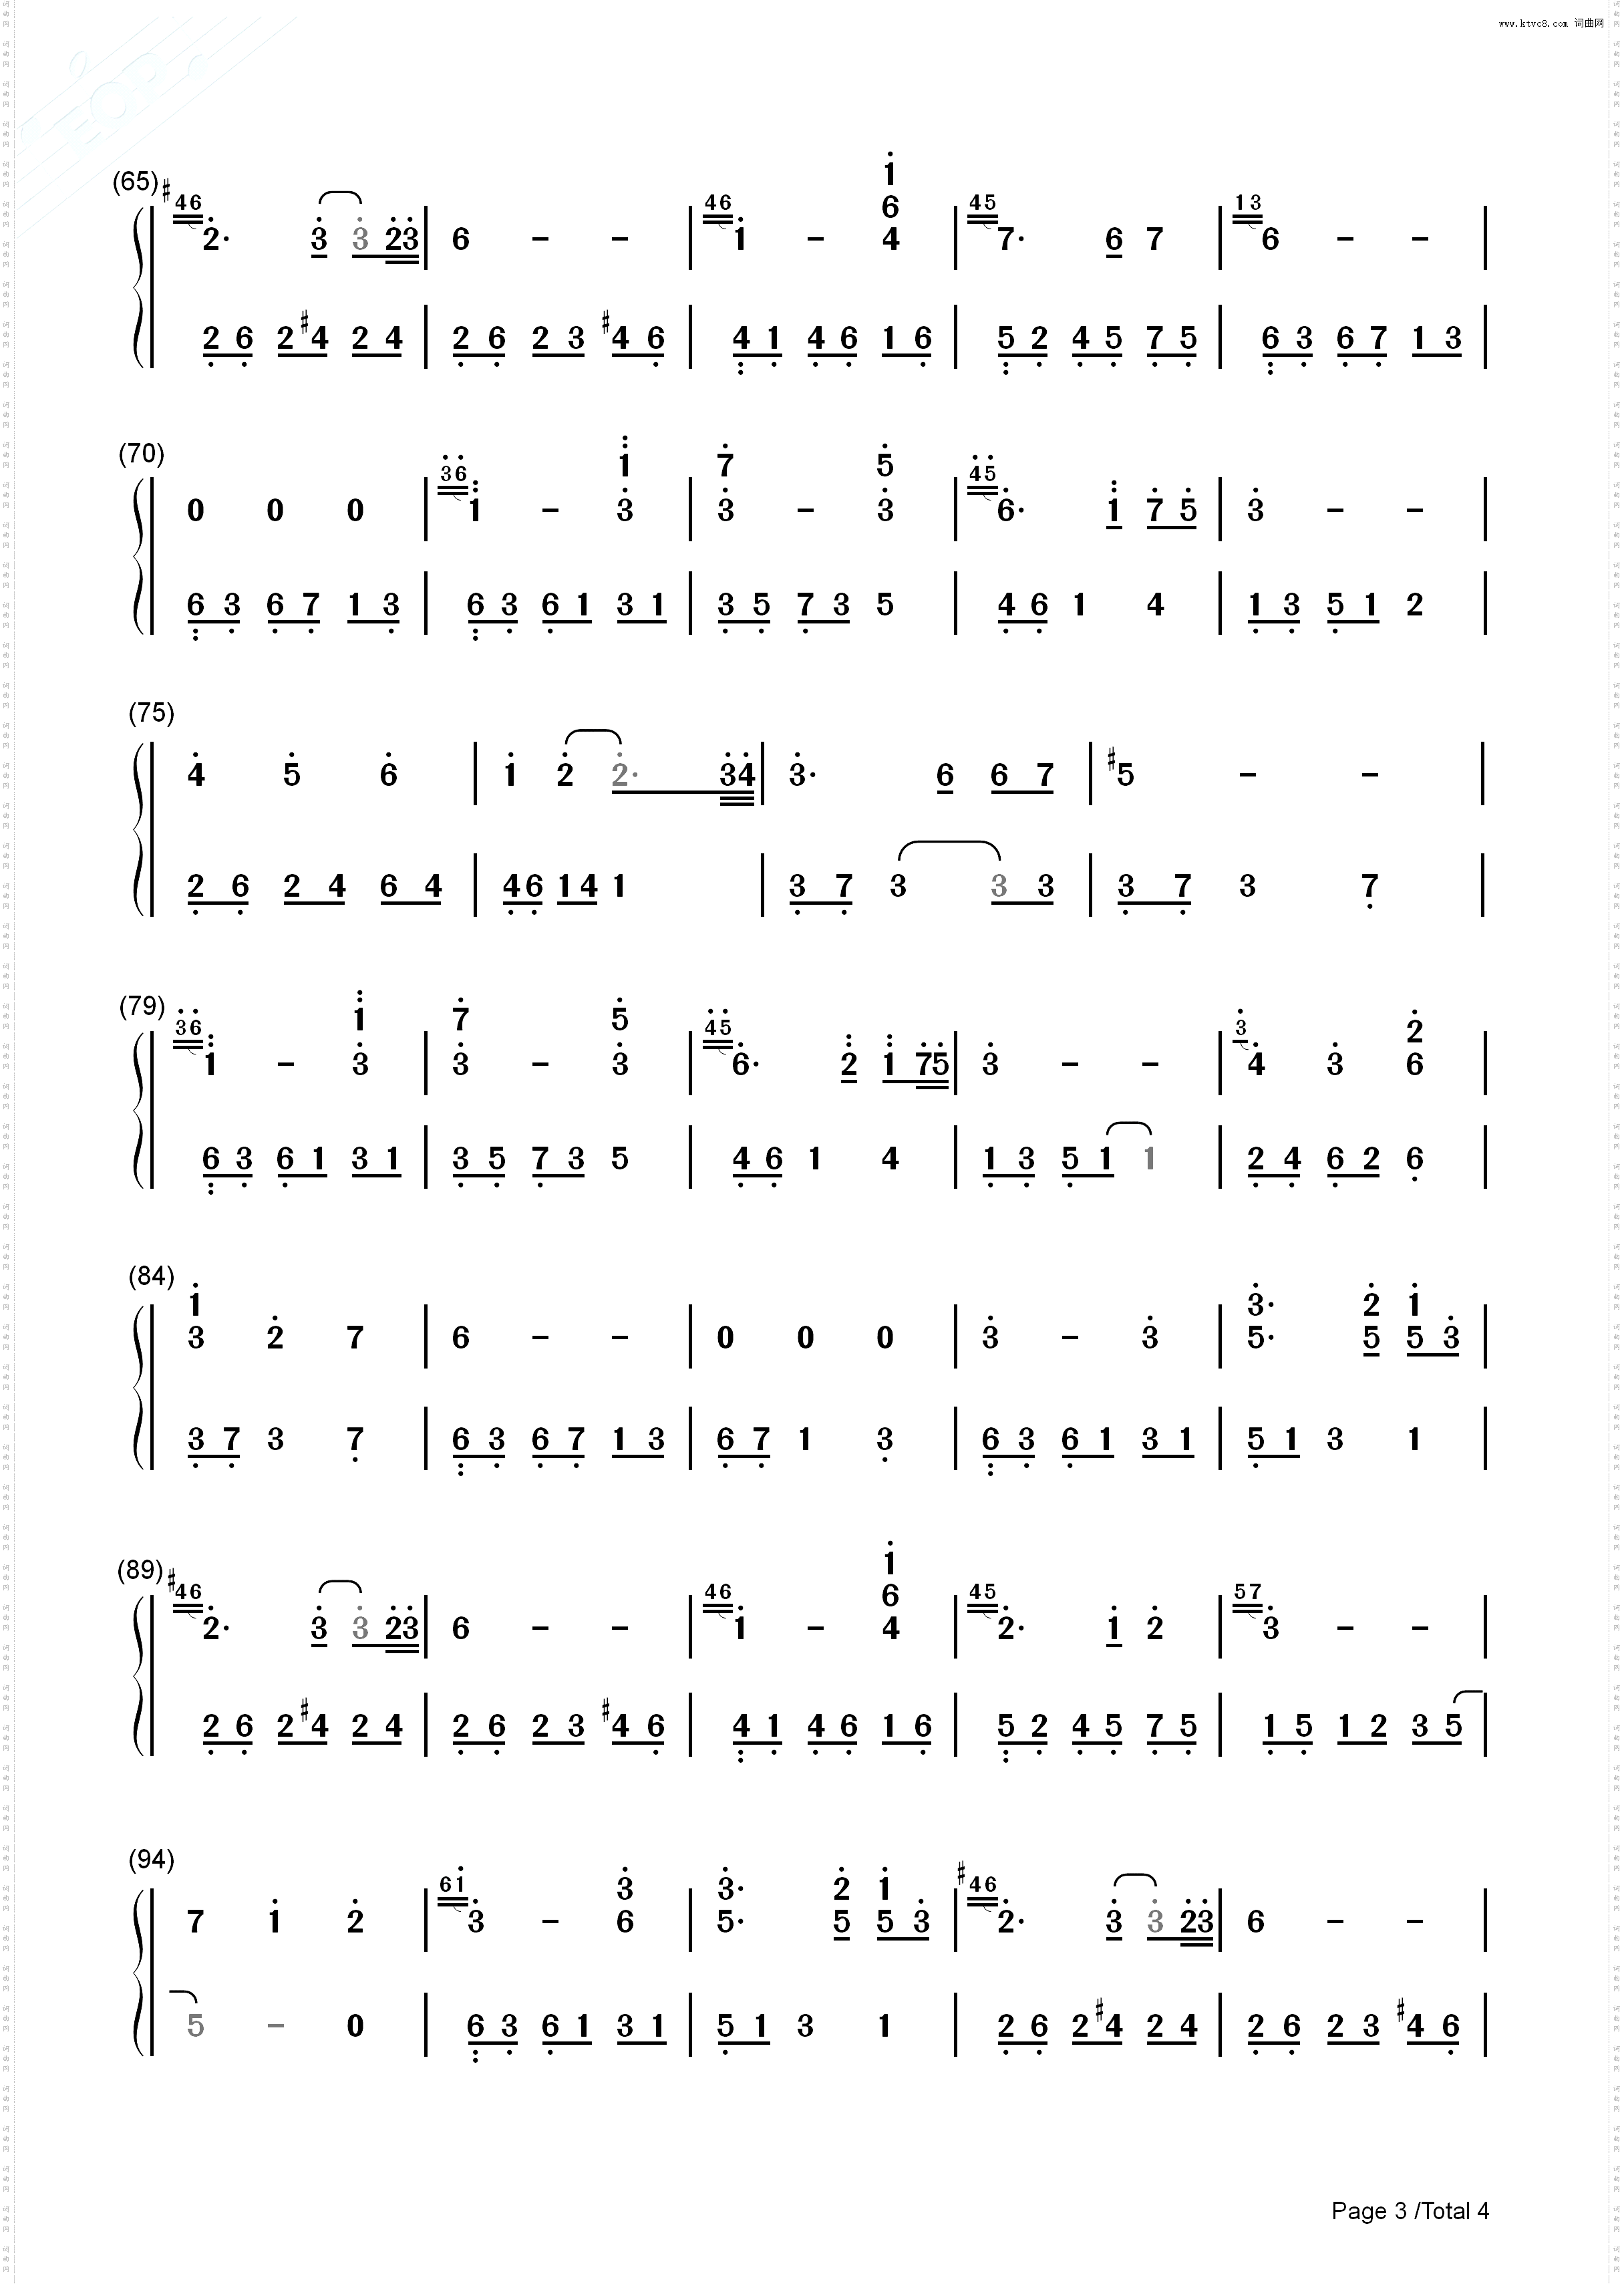 www.ktvc8.com 词曲网
(65) # 46 2· 3 3 23 | 6 - - | 46 1 - 1 6 4 | 45 7· 6 7 | 13 6 - - |
2 6 2 #4 2 4 | 2 6 2 3 #4 6 | 4 1 4 6 1 6 | 5 2 4 5 7 5 | 6 3 6 7 1 3 |
(70) 0 0 0 | 36 1 - 1 3 | 7 3 - 5 3 | 45 6· 1 7 5 | 3 - - |
6 3 6 7 1 3 | 6 3 6 1 3 1 | 3 5 7 3 5 | 4 6 1 4 | 1 3 5 1 2 |
(75) 4 5 6 | 1 2 2· 34 | 3· 6 6 7 | #5 - - |
2 6 2 4 6 4 | 46 14 1 | 3 7 3 3 3 | 3 7 3 7 |
(79) 36 1 - 1 3 | 7 3 - 5 3 | 45 6· 2 1 75 | 3 - - | 3 4 3 2 6 |
6 3 6 1 3 1 | 3 5 7 3 5 | 4 6 1 4 | 1 3 5 1 1 | 2 4 6 2 6 |
(84) 1 3 2 7 | 6 - - | 0 0 0 | 3 - 3 | 3· 5· 2 5 1 5 3 |
3 7 3 7 | 6 3 6 7 1 3 | 6 7 1 3 | 6 3 6 1 3 1 | 5 1 3 1 |
(89) # 46 2· 3 3 23 | 6 - - | 46 1 - 1 6 4 | 45 2· 1 2 | 57 3 - - |
2 6 2 #4 2 4 | 2 6 2 3 #4 6 | 4 1 4 6 1 6 | 5 2 4 5 7 5 | 1 5 1 2 3 5 |
(94) 7 1 2 | 61 3 - 3 6 | 3· 5· 2 5 1 5 3 | # 46 2· 3 3 23 | 6 - - |
5 - 0 | 6 3 6 1 3 1 | 5 1 3 1 | 2 6 2 #4 2 4 | 2 6 2 3 #4 6 |
Page 3 /Total 4